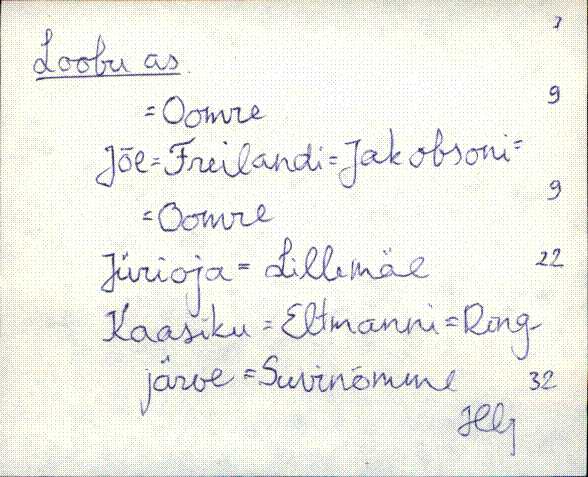 Loobu as.
= Oomre 9
Jõe = Freilandi = Jakobsoni =
= Oomre 9
Jürioja = Lillemäe 22
Kaasiku = Eltmanni = Räng-
järve = Suvinõmme 32